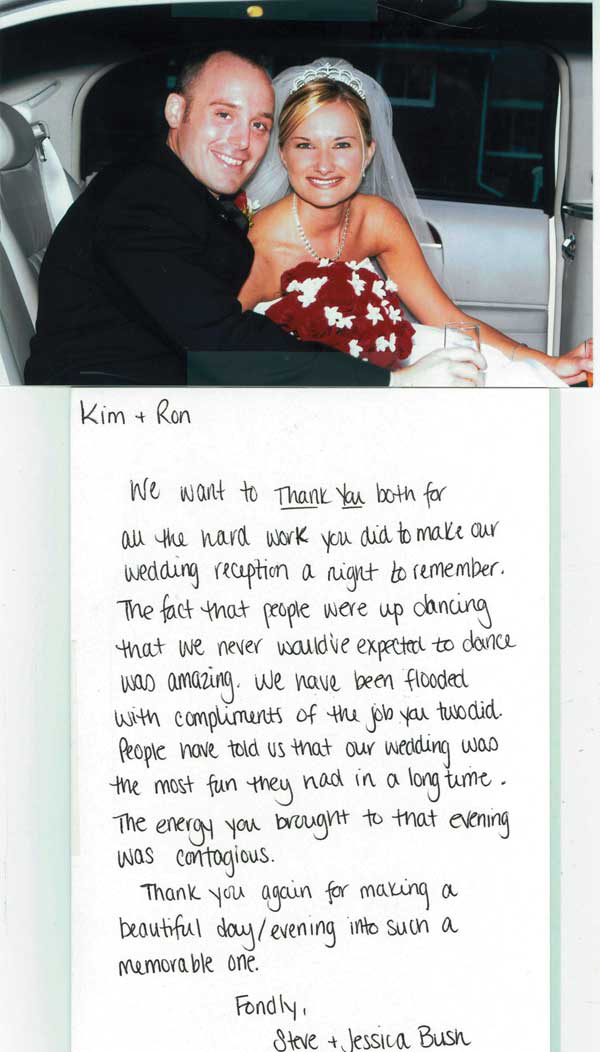 Kim + Ron
We want to Thank You both for
all the hard work you did to make our
wedding reception a night to remember.
The fact that people were up dancing
that we never would've expected to dance
was amazing. We have been flooded
with compliments of the job you two did.
People have told us that our wedding was
the most fun they had in a long time.
The energy you brought to that evening
was contagious.
Thank you again for making a
beautiful day/evening into such a
memorable one.
Fondly,
Steve + Jessica Bush